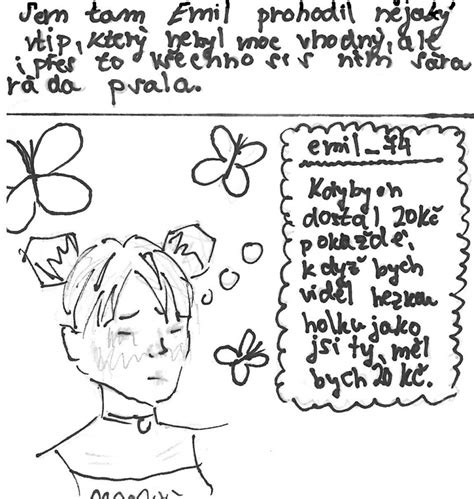 Sem tam Emil prohodil nějaký
vtip, který nebyl moc vhodný, ale
i přes to všechno si s ním Sára
ráda psala.
emil_74
Kdyby on
dostal 20Kč
pokaždé,
když bych
viděl hezkou
holku jako
jsi ty, měl
bych 20 Kč.